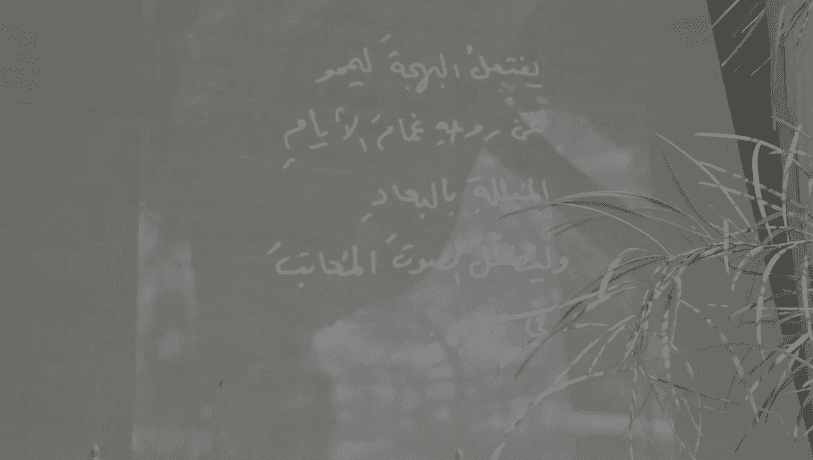 يفتعلُ البهجةَ ليمحو
عن روحهِ غمامَ الأيامِ
المُبللةِ بالبعادِ
الصوتَ المُعاتبَ